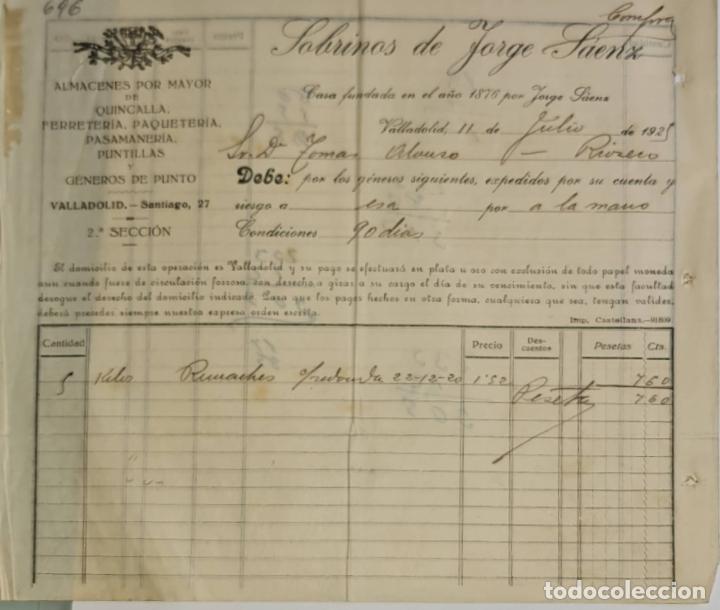 696
Compra
Sobrinos de Jorge Sáenz
Casa fundada en el año 1876 por Jorge Sáenz
ALMACENES POR MAYOR
DE
QUINCALLA,
FERRETERÍA, PAQUETERÍA,
PASAMANERÍA,
PUNTILLAS
Y
GÉNEROS DE PUNTO
VALLADOLID.—Santiago, 27
2.ª SECCIÓN
Valladolid, 11 de Julio de 1925
Sr. D. Tomas Alonso — Rioseco
Debe: por los géneros siguientes, expedidos por su cuenta y
riesgo a esa por a la mano
Condiciones 90 dias
El domicilio de esta operación es Valladolid y su pago se efectuará en plata u oro con exclusión de todo papel moneda
aun cuando fuere de circulación forzosa, con derecho a girar a su cargo el día de su vencimiento, sin que esta facultad
derogue el derecho del domicilio indicado. Para que los pagos hechos en otra forma, cualquiera que sea, tengan validez,
deberá precederles siempre nuestra expresa orden escrita.
Imp. Castellana.—91809
Cantidad Precio Descuentos Pesetas Cts.
5 Kilos Remaches c/redonda 22-12-20 1'52 7 60
Pesetas 7 60
todocoleccion.net